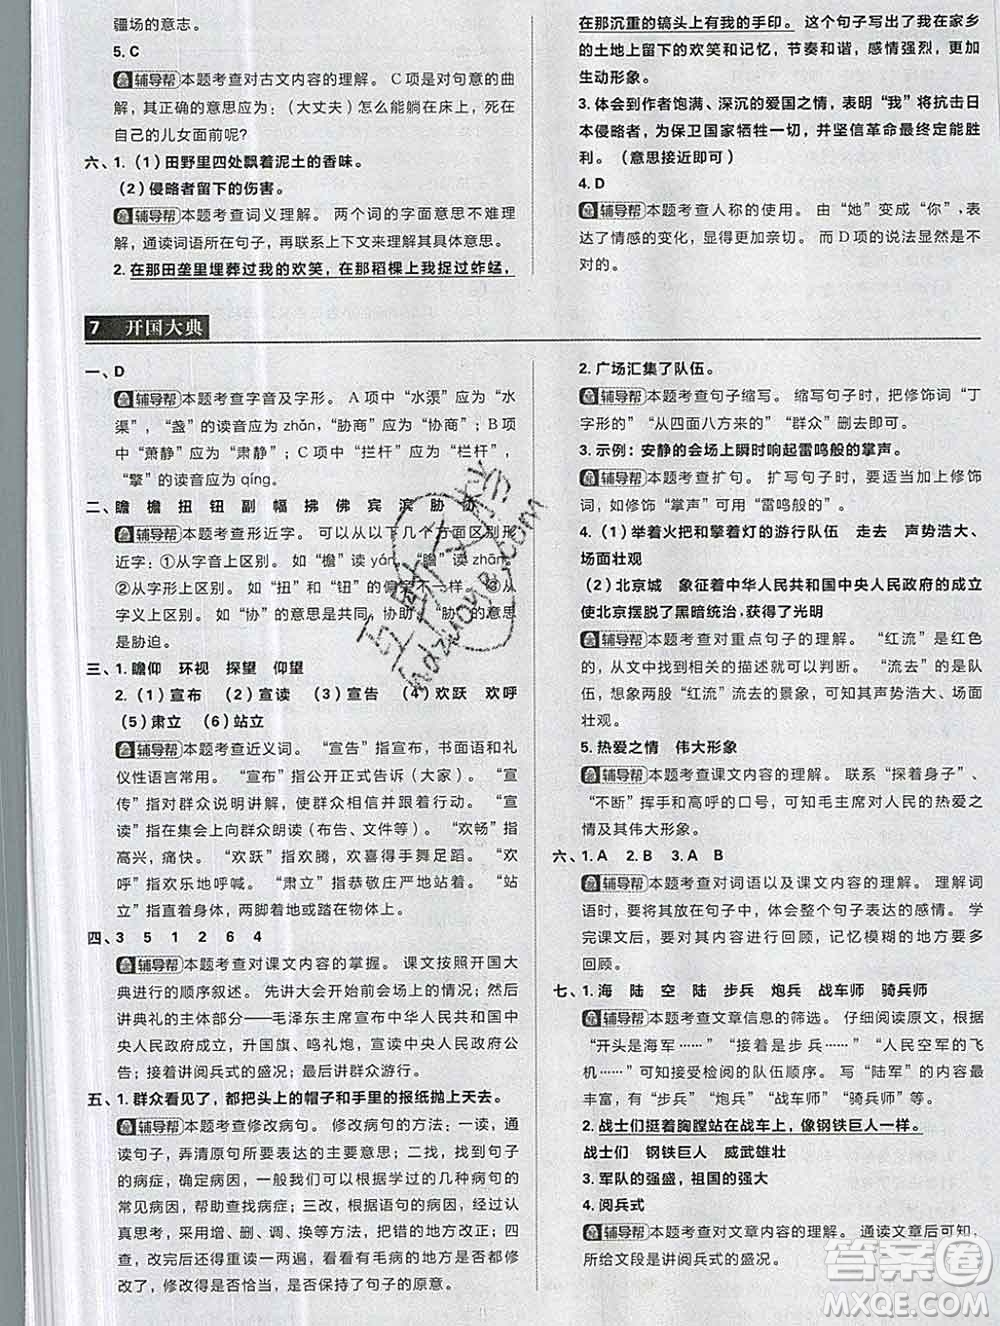 疆场的意志。
5. C
辅导帮 本题考查对古文内容的理解。C项是对句意的曲
解，其正确的意思应为：（大丈夫）怎么能躺在床上，死在
自己的儿女面前呢？
六、1.（1）田野里四处飘着泥土的香味。
（2）侵略者留下的伤害。
辅导帮 本题考查词义理解。两个词的字面意思不难理
解，通读词语所在句子，再联系上下文来理解其具体意思。
2. 在那田垄里埋葬过我的欢笑，在那稻棵上我捉过蚱蜢，
在那沉重的镐头上有我的手印。这个句子写出了我在家乡
的土地上留下的欢笑和记忆，节奏和谐，感情强烈，更加
生动形象。
3. 体会到作者饱满、深沉的爱国之情，表明“我”将抗击日
本侵略者，为保卫国家牺牲一切，并坚信革命最终定能胜
利。（意思接近即可）
4. D
辅导帮 本题考查人称的使用。由“她”变成“你”，表
达了情感的变化，显得更加亲切。而D项的说法是不
对的。
7 开国大典
一、D
辅导帮 本题考查字音及字形。A项中“水渠”应为“水
渠”，“盏”的读音应为zhǎn，“胁商”应为“协商”；B项
中“萧静”应为“肃静”；C项中“拦杆”应为“栏杆”，
“擎”的读音应为qíng。
二、瞻 檐 扭 钮 副 幅 拂 佛 宾 滨 胁 协
辅导帮 本题考查形近字。可以从以下几个方面区别形
近字：①从字音上区别。如“檐”读yán，“瞻”读zhān
②从字形上区别。如“扭”和“钮”的偏旁不一样。③从
字义上区别。如“协”的意思是共同，协助，“胁”的意思
是胁迫。
三、1. 瞻仰 环视 探望 仰望
2.（1）宣布 （2）宣读 （3）宣告 （4）欢跃 欢呼
（5）肃立 （6）站立
辅导帮 本题考查近义词。“宣告”指宣布，书面语和礼
仪性语言常用。“宣布”指公开正式告诉（大家）。“宣
传”指对群众说明讲解，使群众相信并跟着行动。“宣
读”指在集会上向群众朗读（布告、文件等）。“欢畅”指
高兴，痛快。“欢跃”指欢腾，欢喜得手舞足蹈。“欢
呼”指欢乐地呼喊。“肃立”指恭敬庄严地站着。“站
立”指直着身体，两脚着地或踏在物体上。
四、3 5 1 2 6 4
辅导帮 本题考查对课文内容的掌握。课文按照开国大
典进行的顺序叙述。先讲大会开始前会场上的情况；然后
讲典礼的主体部分——毛泽东主席宣布中华人民共和国中
央人民政府成立，升国旗、鸣礼炮，宣读中央人民政府公
告；接着讲阅兵式的盛况；最后讲群众游行。
五、1. 群众看见了，都把头上的帽子和手里的报纸抛上天去。
辅导帮 本题考查修改病句。修改病句的方法：一读，通
读句子，弄清原句所要表达的主要意思；二找，找到句子
的病症，确定病因，一般我们学过的几种病句
的常见病因，帮助查找病症；三改，根据语句的病因，认
真思考，采用增、删、调、换等方法，把错的地方改正；四
查，改完后还得重读一两遍，看看有毛病的地方是否都修
改了，修改得是否恰当，是否保持了句子的原意。
2. 广场汇集了队伍。
辅导帮 本题考查句子缩写。缩写句子时，把修饰词“丁
字形的”“从四面八方来的”“群众”删去即可。
3. 示例：安静的会场上瞬时响起雷鸣般的掌声。
辅导帮 本题考查扩句。扩写句子时，适当加上修饰
词，如修饰“掌声”可用“雷鸣般的”。
4.（1）举着火把和擎着灯的游行队伍 走去 声势浩大、
场面壮观
（2）北京城 象征着中华人民共和国中央人民政府的成立
使北京摆脱了黑暗统治，获得了光明
辅导帮 本题考查对重点句子的理解。“红流”是红色
的，从文中找到相关的描述就可以判断。“流去”的意思
是走去，想象两股“红流”流去的景象，可知其声势浩大、场面
壮观。
5. 热爱之情 伟大形象
辅导帮 本题考查课文内容的理解。联系“探着身子”、
“不断”挥手和高呼的口号，可知毛主席对人民的热爱之
情及其伟大形象。
六、1. A 2. B 3. A B
辅导帮 本题考查对词语以及课文内容的理解。理解词
语时，要将其放在句子中，体会句子表达的感情。学
完课文后，要对其内容进行回顾，记忆模糊的地方要多
回顾。
七、1. 海 陆 空 陆 步兵 炮兵 战车师 骑兵师
辅导帮 本题考查文章信息的筛选。仔细阅读原文，根据
“开头是海军……”“接着是步兵……”“人民空军的飞
机……”可知接受检阅的队伍顺序。写“陆军”的内容最
丰富，有“步兵”“炮兵”“战车师”“骑兵师”等。
2. 战士们挺着胸膛站在战车上，像钢铁巨人一样。
战士们 钢铁巨人 威武雄壮
3. 军队的强盛，祖国的强大
4. 阅兵式
辅导帮 本题考查对文章内容的理解。通读文章后可知，
所给文段是讲阅兵式的盛况。
答案圈
MXQE.COM